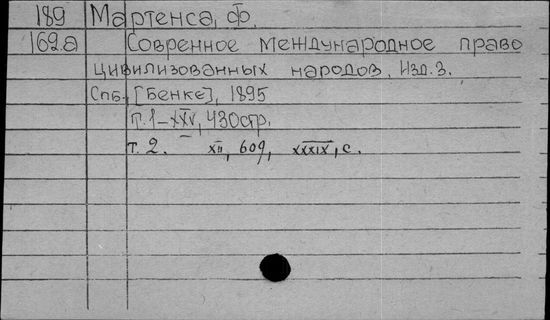 189 Мартенса, ф.
162.а Совренное международное право
цивилизованных народов. Изд. 3.
Спб. [Бенке], 1895
т. 1 – XXV, 430 стр.
т. 2. XII, 609, XXXIX, с.